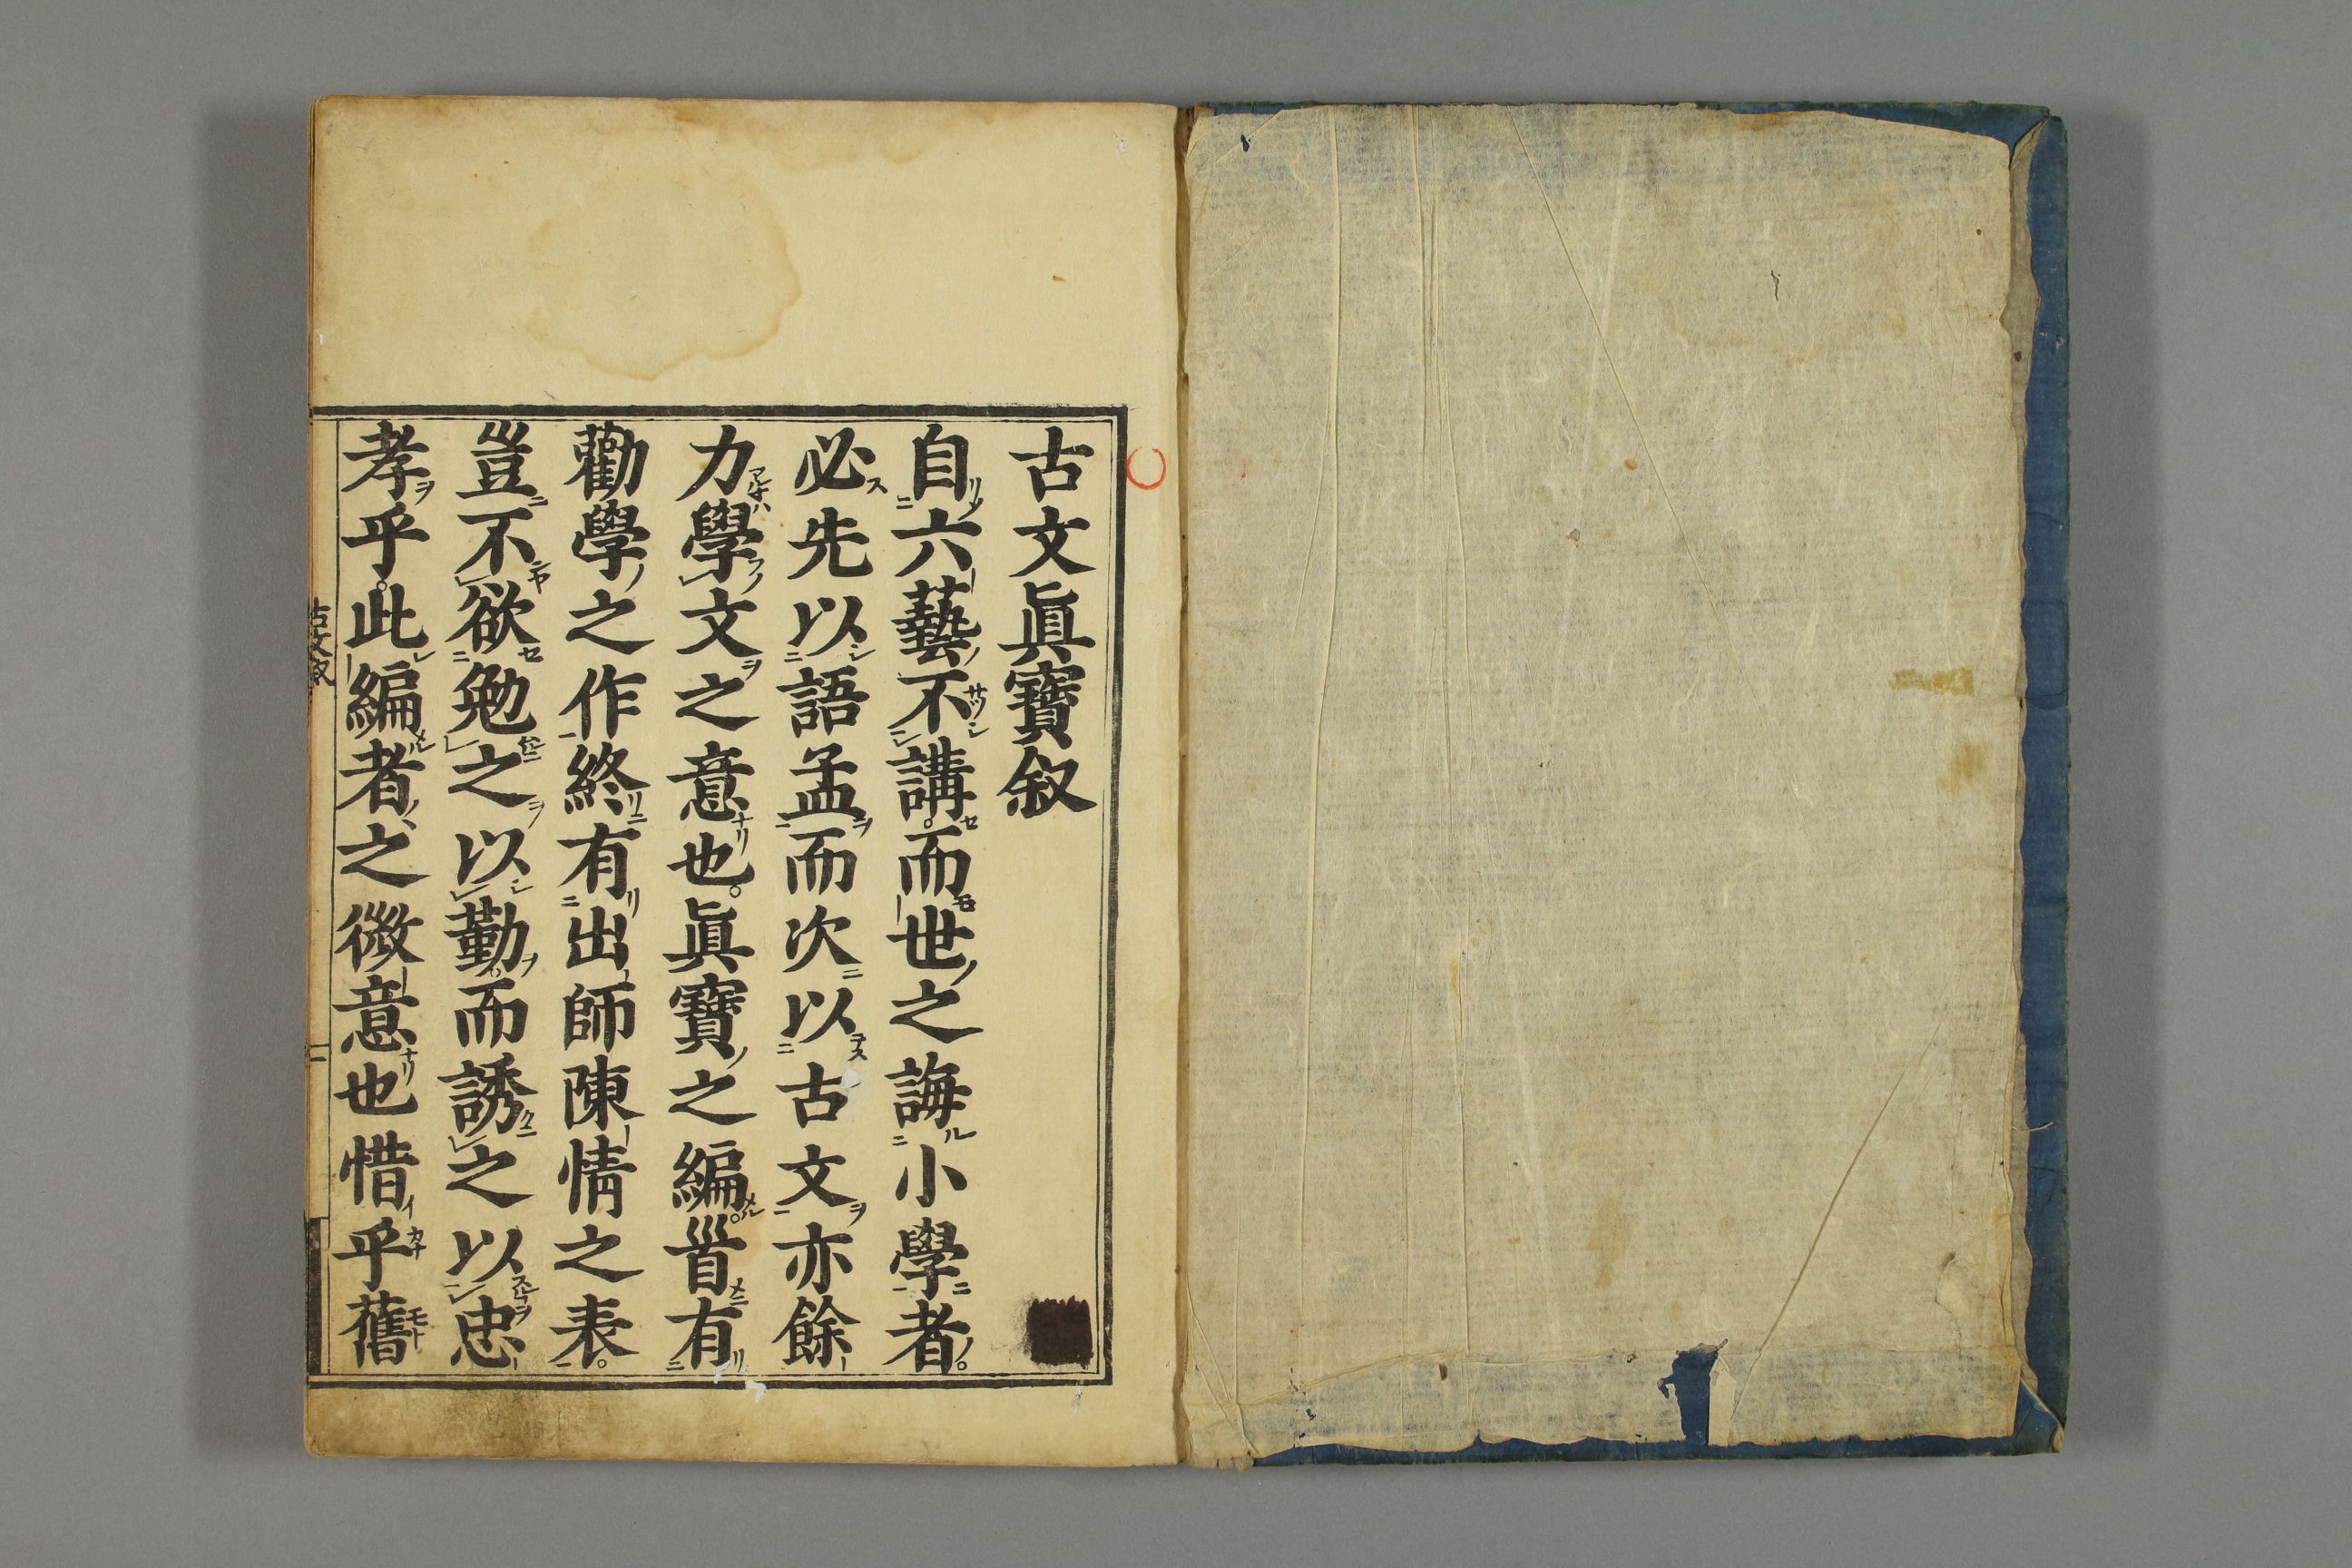 古文眞寶叙
自六藝不講而世之誨小學者
必先以語孟而次以古文亦餘
力學文之意也眞寶之編首有
勸學之作終有出師陳情之表
豈不欲勉之以勤而誘之以忠
孝乎此編者之微意也惜乎舊
古文叙